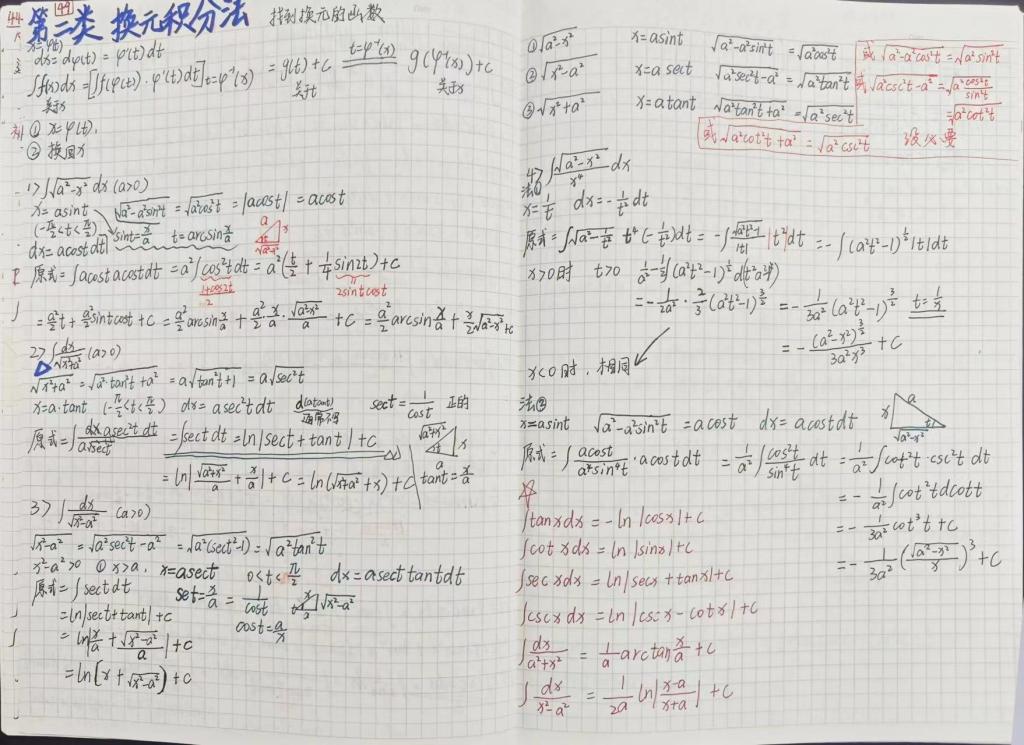 44 49
第二类 换元积分法 找到换元的函数
x=φ(t)
dx=dφ(t)=φ'(t)dt
∫f(x)dx=[∫f(φ(t))·φ'(t)dt]t=φ⁻¹(x) = g(t)+C t=φ⁻¹(x) g(φ⁻¹(x))+C
关于x 关于t 关于x
① x=φ(t),
② 换回x
1> ∫√(a²-x²) dx (a>0)
x=asint √(a²-a²sin²t) = √(a²cos²t) = |acost| = acost
(-π/2<t<π/2) sint=x/a t=arcsin x/a
a x t √(a²-x²)
dx=acostdt
原式=∫acostacostdt = a²∫cos²tdt = a²(t/2+1/4 sin2t)+C
(1+cos2t)/2 2sintcost
= a²/2 t + a²/2 sintcost + C = a²/2 arcsin x/a + a²/2 · x/a · √(a²-x²)/a + C = a²/2 arcsin x/a + x/2 √(a²-x²)+C
2> ∫dx/√(x²+a²) (a>0)
√(x²+a²) = √(a²·tan²t+a²) = a√(tan²t+1) = a√(sec²t)
x=a·tant (-π/2<t<π/2) dx=asec²tdt d(atant) 通常不写 sect=1/cost 正的
原式=∫dx asec²t dt/a√(sec²t) = ∫sectdt = ln|sect+tant|+C
√(a²+x²) x t a
= ln|√(a²+x²)/a + x/a|+C = ln(√(x²+a²)+x)+C tant=x/a
3> ∫dx/√(x²-a²) (a>0)
√(x²-a²) = √(a²sec²t-a²) = √(a²(sect²-1)) = √(a²tan²t)
x²-a²>0 ① x>a, x=asect 0<t<π/2 dx=asecttantdt
原式=∫sectdt set=x/a=1/cost x √(x²-a²) t a
=ln|sect+tant|+C cost=a/x
=ln|x/a+√(x²-a²)/a|+C
=ln[x+√(x²-a²))+C
①√(a²-x²) x=asint √(a²-a²sin²t) = √(a²cos²t) 或 √(a²-a²cos²t)=√(a²sin²t)
②√(x²-a²) x=a sect √(a²sec²t-a²) = √(a²tan²t) 或 √(a²csc²t-a²)=√(a²cos²t/sin²t)
=√(a²cot²t)
③√(x²+a²) x=atant √(a²tan²t+a²) = √(a²sec²t)
或 √(a²cot²t+a²) = √(a²csc²t) 没必要
4> ∫√(a²-x²)/x⁴ dx
法①
x=1/t dx=-1/t² dt
原式=∫√(a²-1/t²) t⁴(-1/t²)dt = -∫√(a²t²-1)/|t| t²dt = -∫(a²t²-1)^(1/2)|t|dt
x>0时 t>0 1/a²·-1/2∫(a²t²-1)^(1/2)d(t²a²)
= -1/2a² · 2/3(a²t²-1)^(3/2) = -1/3a² (a²t²-1)^(3/2) t=1/x
= -(a²-x²)^(3/2)/3a²x³ + C
x<0时, 相同
法②
x=asint √(a²-a²sin²t) = acost dx=acostdt
x a t √(a²-x²)
原式=∫acost/a⁴sin⁴t · acostdt = 1/a²∫cos²t/sin⁴t dt = 1/a²∫cot²t·csc²t dt
= -1/a²∫cot²tdcott
= -1/3a² cot³t+C
= -1/3a² (√(a²-x²)/x)³+C
☆
∫tanxdx=-ln|cosx|+C
∫cotxdx=ln|sinx|+C
∫secxdx=ln|secx+tanx|+C
∫cscxdx=ln|cscx-cotx|+C
∫dx/(a²+x²) = 1/a arctan x/a+C
∫dx/(x²-a²) = 1/2a ln|(x-a)/(x+a)|+C